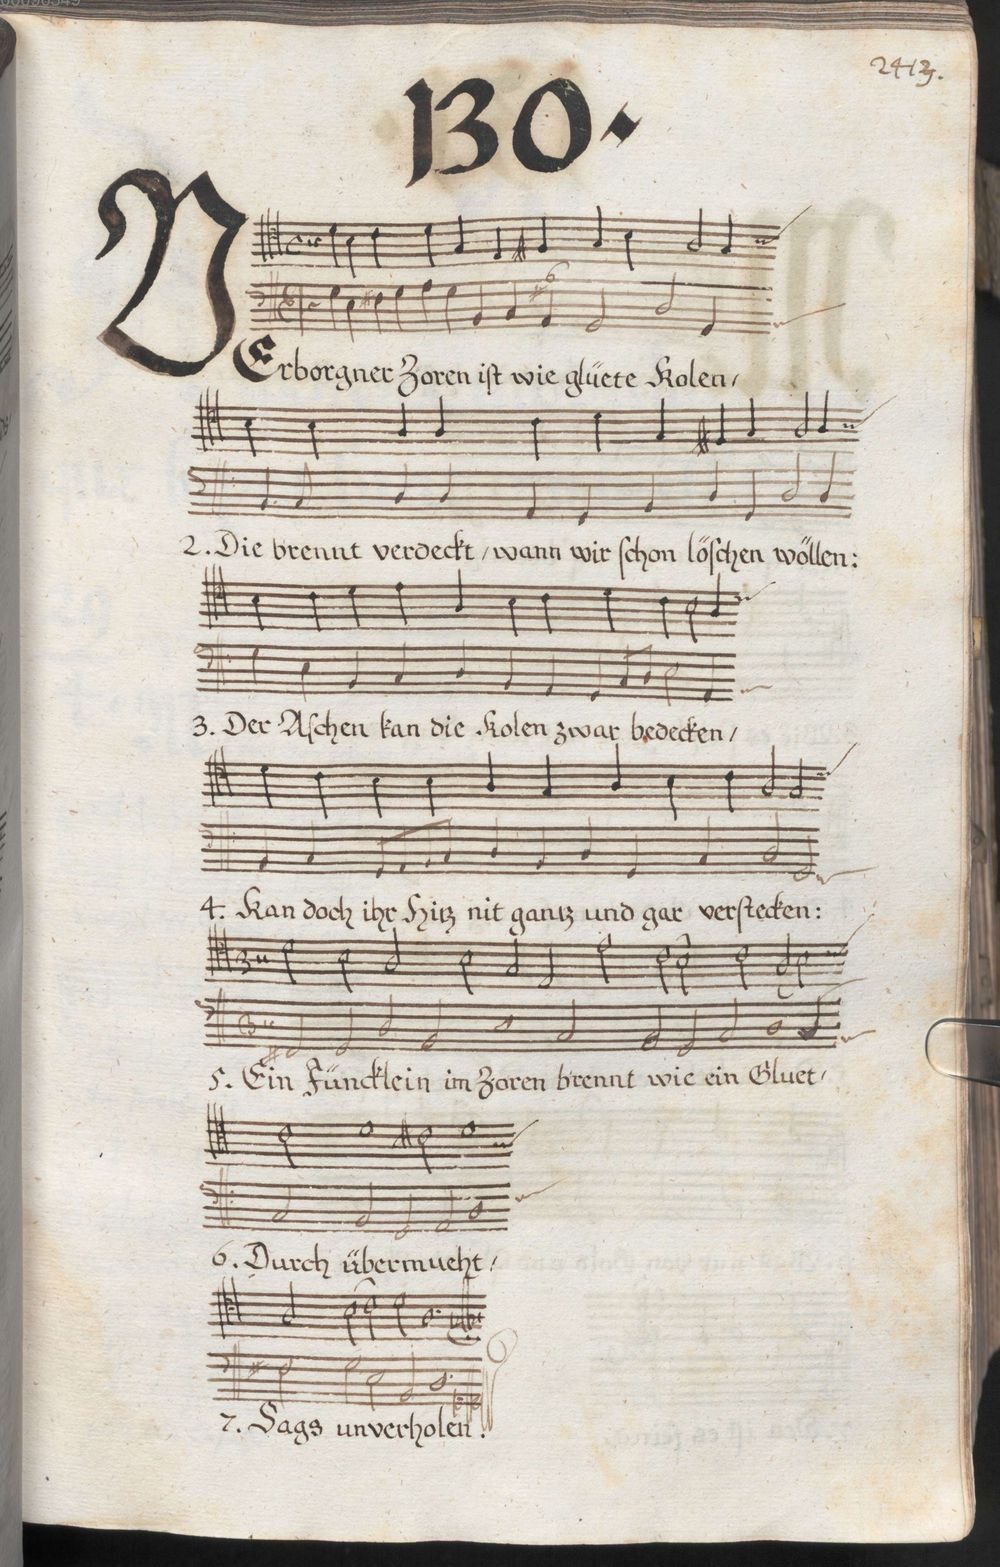 130.
VErborgner Zoren ist wie glüete Kolen/
2. Die brennt verdeckt/wann wir schon löschen wöllen:
3. Der Aschen kan die Kolen zwar bedecken/
4. Kan doch ihr Hitz nit gantz und gar verstecken:
5. Ein Füncklein im Zoren brennt wie ein Gluet/
6. Durch übermueht/
7. Sags unverholen.